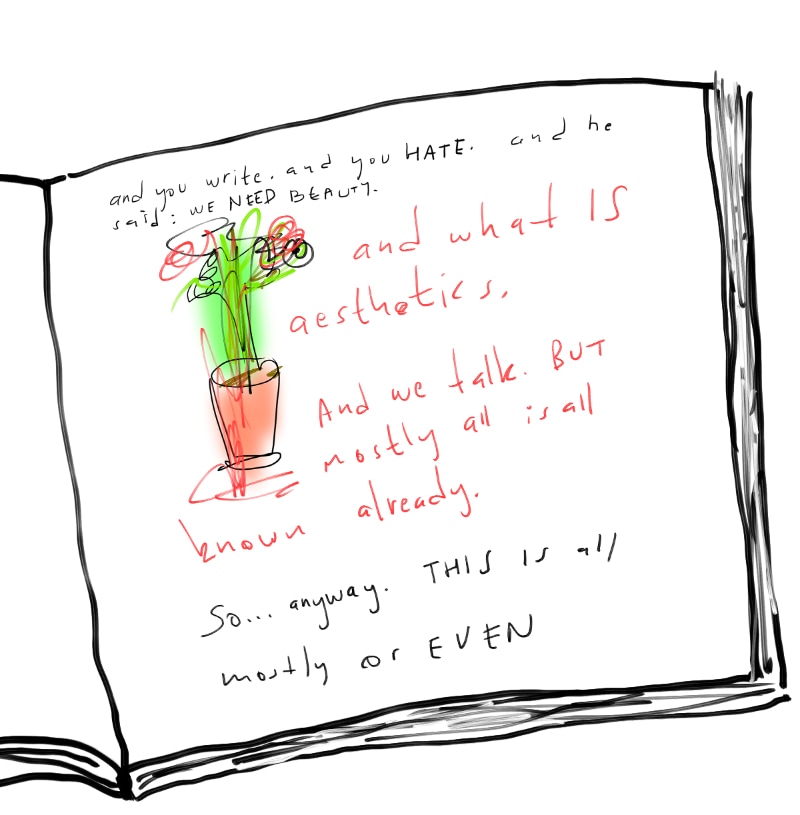 and you write. and you HATE. and he
said: WE NEED BEAUTY.
and what IS
aesthetics.
And we talk. BUT
mostly all is all
known already.
So... anyway. THIS IS all
mostly or EVEN